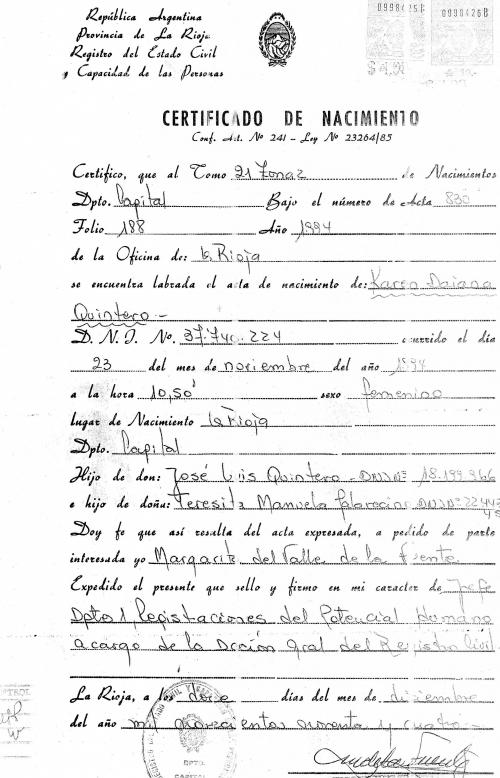 República Argentina
Provincia de La Rioja
Registro del Estado Civil
y Capacidad de las Personas
0998425B
0998426B
CERTIFICADO DE NACIMIENTO
Conf. Art. Nº 241 - Ley Nº 23264/85
Certifico, que al Tomo 21 de Nacimientos
Dpto. Capital Bajo el número de Acta 830
Folio 188 Año 1994
de la Oficina de: La Rioja
se encuentra labrada el acta de nacimiento de: Karen Daiana
Quintero.-
D. N. I. No. 37.740.224 ocurrido el día
23 del mes de noviembre del año 1994
a la hora 10,50 sexo femenino
lugar de Nacimiento La Rioja
Dpto. Capital
Hijo de don: José Luis Quintero - DNI Nº 18.199.966
e hijo de doña: Teresita Manuela DNI Nº 22443
Doy fe que así resalta del acta expresada, a pedido de parte
interesada yo Margarita del Valle de la Fuente
Expedido el presente que sello y firmo en mi caracter de Jefe
Dpto 1 Registraciones del Potencial Humano
a cargo de la Dcción Gral del Registro Civil.
La Rioja, a los doce días del mes de diciembre
del año mil novecientos noventa y cuatro.-
DPTO.
CAPITAL